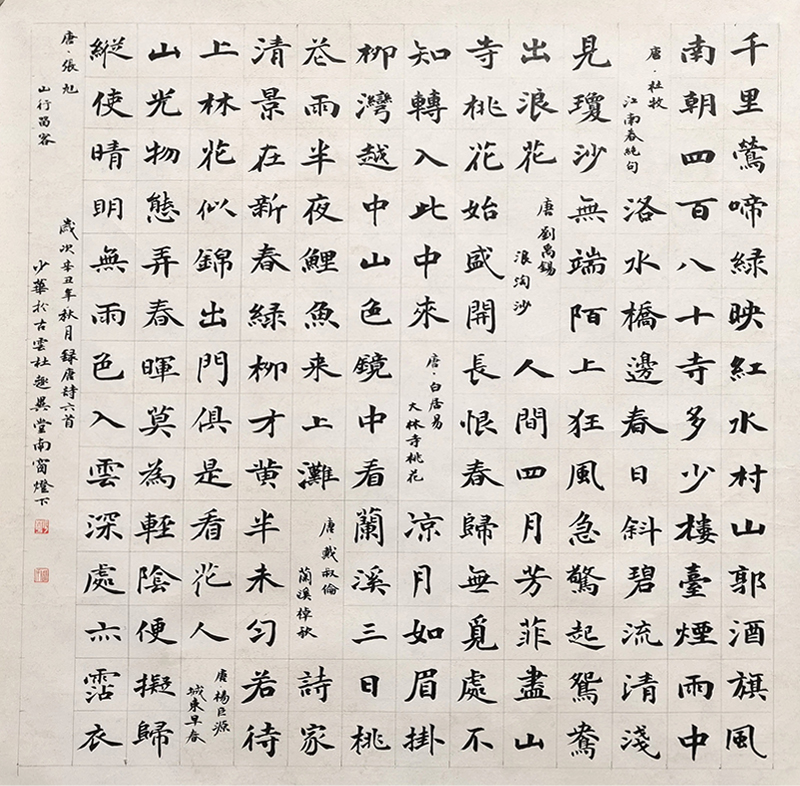 千里鶯啼綠映紅水村山郭酒旗風
南朝四百八十寺多少樓臺煙雨中
唐·杜牧
江南春絕句
洛水橋邊春日斜碧流清淺
見瓊沙無端陌上狂風急驚起鴛鴦
出浪花
唐劉禹錫
浪淘沙
人間四月芳菲盡山
寺桃花始盛開長恨春歸無覓處不
知轉入此中來
唐·白居易
大林寺桃花
凉月如眉掛
柳灣越中山色鏡中看蘭溪三日桃
花雨半夜鯉魚来上灘
唐·戴叔倫
蘭溪棹秋
詩家
清景在新春綠柳才黄半未匀若待
上林花似錦出門俱是看花人
唐楊巨源
城東早春
山光物態弄春暉莫為輕陰便擬歸
縱使晴明無雨色入雲深處亦霑衣
唐·張旭
山行留客
歲次辛丑年秋月録唐詩六首
少華於古雲杜趣異堂南窗燈下